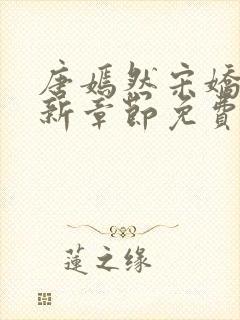 唐嫣然宋嬌
新章節免費
蓮之缘